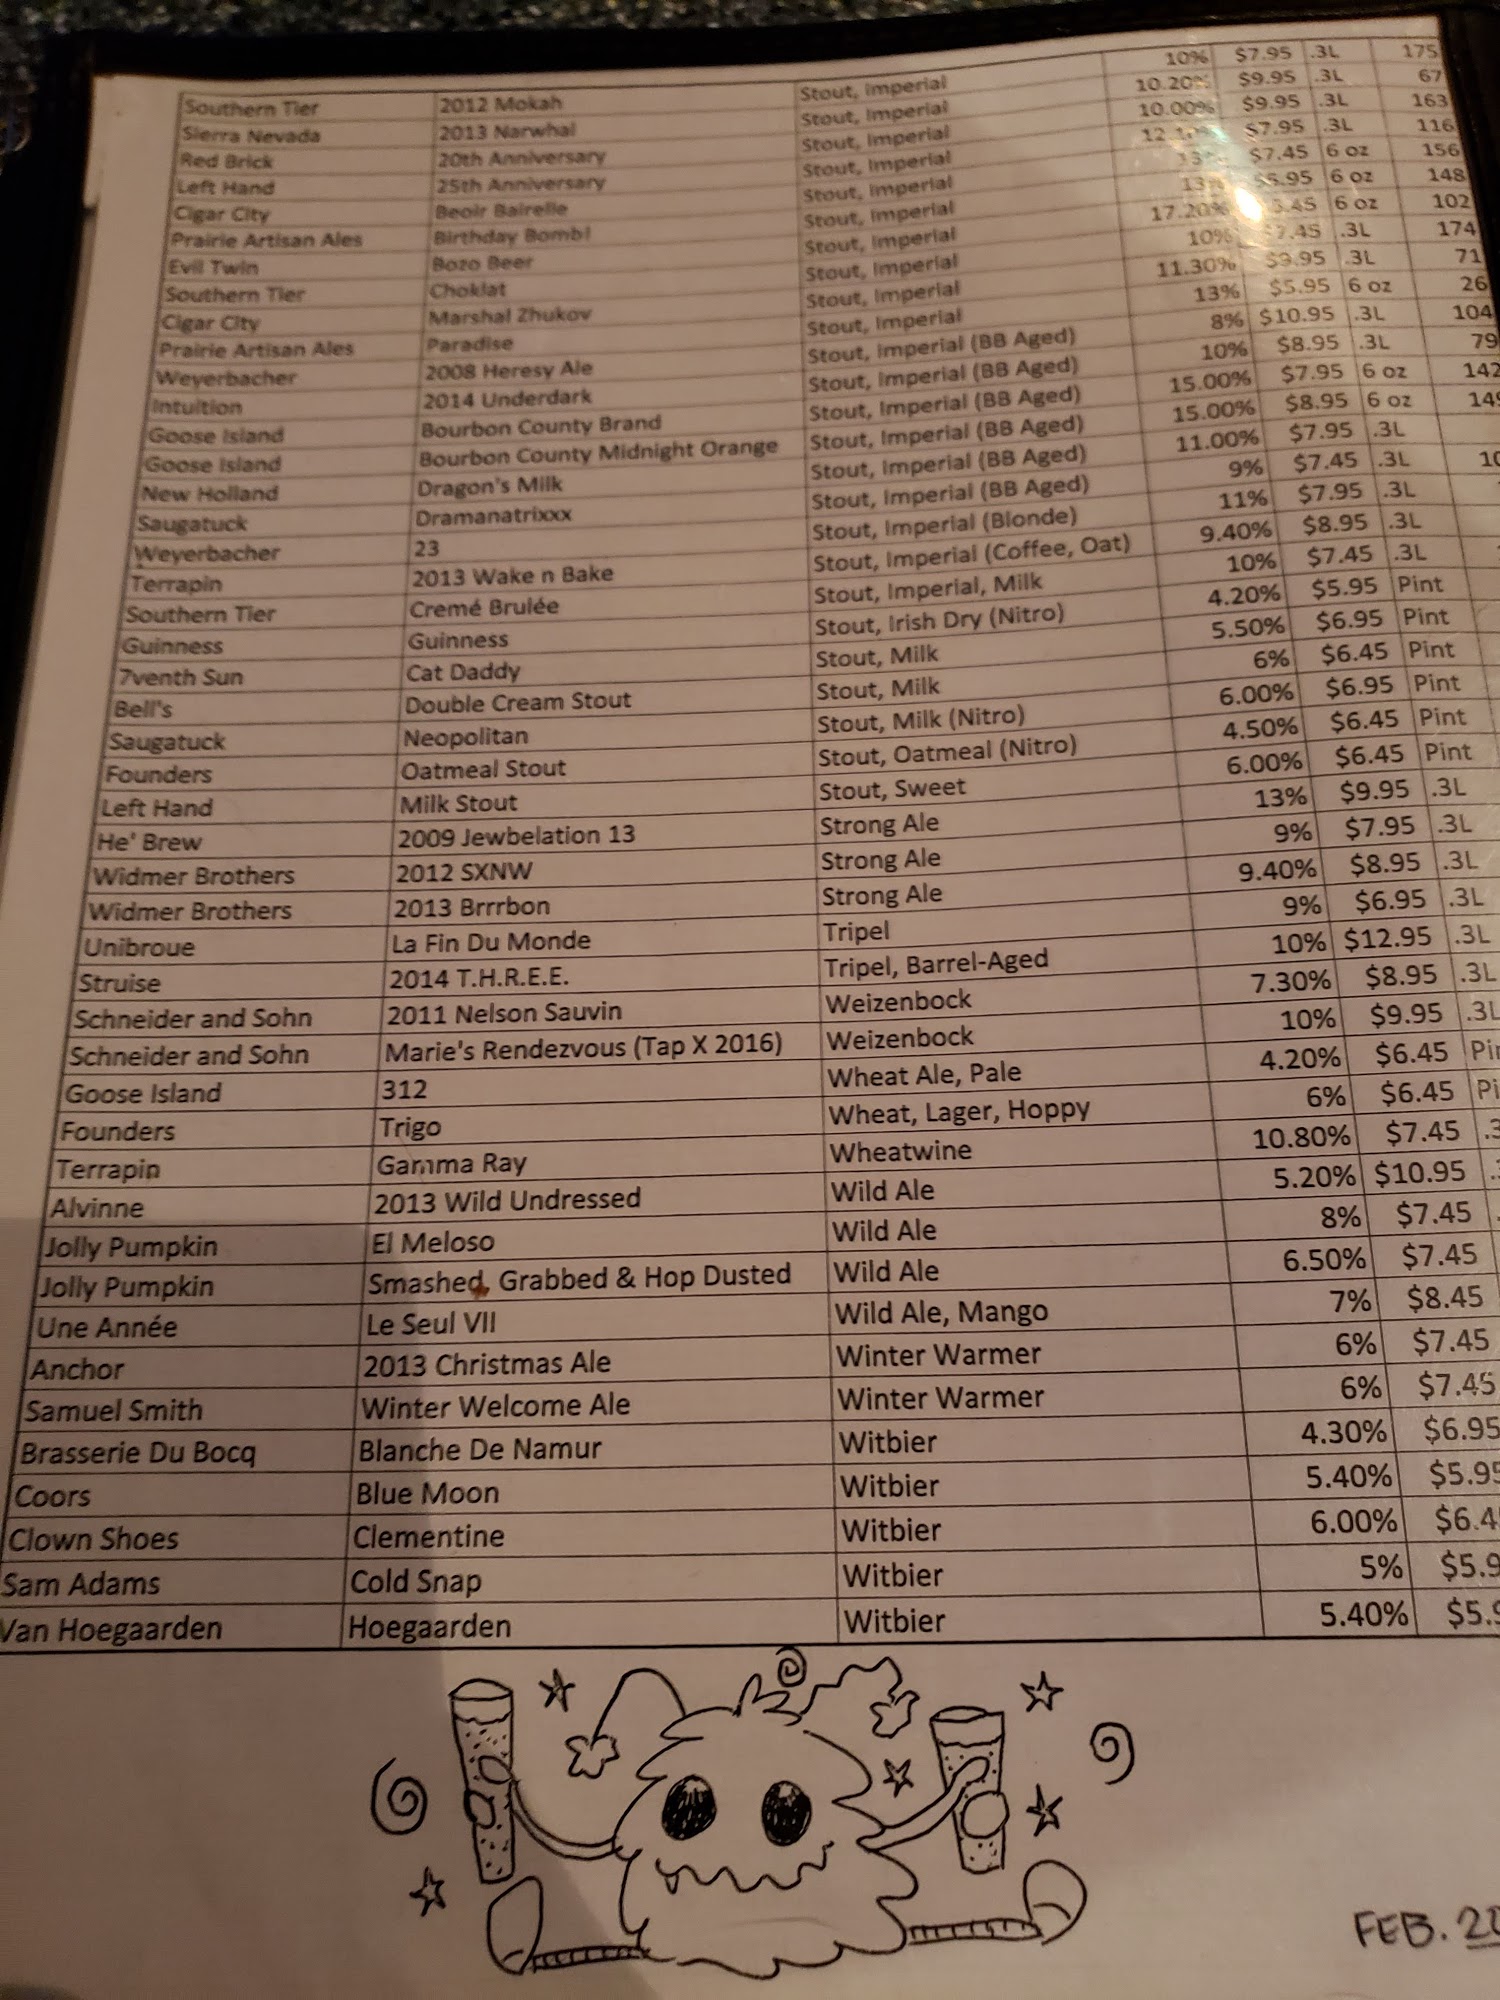 Southern Tier 2012 Mokah Stout, Imperial 10% $7.95 .3L 175
Sierra Nevada 2013 Narwhal Stout, Imperial 10.20% $9.95 .3L 67
Red Brick 20th Anniversary Stout, Imperial 10.00% $9.95 .3L 163
Left Hand 25th Anniversary Stout, Imperial $7.95 .3L 116
Cigar City Beoir Bairelle Stout, Imperial 13% $7.45 6 oz 156
Prairie Artisan Ales Birthday Bomb! Stout, Imperial 13% $5.95 6 oz 148
Evil Twin Bozo Beer Stout, Imperial 17.20% 6 oz 102
Southern Tier Choklat Stout, Imperial 10% $7.45 .3L 174
Cigar City Marshal Zhukov Stout, Imperial 11.30% $9.95 .3L 71
Prairie Artisan Ales Paradise Stout, Imperial 13% $5.95 6 oz 26
Weyerbacher 2008 Heresy Ale Stout, Imperial (BB Aged) 8% $10.95 .3L 104
Intuition 2014 Underdark Stout, Imperial (BB Aged) 10% $8.95 .3L 79
Goose Island Bourbon County Brand Stout, Imperial (BB Aged) 15.00% $7.95 6 oz 142
Goose Island Bourbon County Midnight Orange Stout, Imperial (BB Aged) 15.00% $8.95 6 oz 149
New Holland Dragon's Milk Stout, Imperial (BB Aged) 11.00% $7.95 .3L
Saugatuck Dramanatrixxx Stout, Imperial (BB Aged) 9% $7.45 .3L 10
Weyerbacher 23 Stout, Imperial (Blonde) 11% $7.95 .3L
Terrapin 2013 Wake n Bake Stout, Imperial (Coffee, Oat) 9.40% $8.95 .3L
Southern Tier Cremé Brulée Stout, Imperial, Milk 10% $7.45 .3L
Guinness Guinness Stout, Irish Dry (Nitro) 4.20% $5.95 Pint
7venth Sun Cat Daddy Stout, Milk 5.50% $6.95 Pint
Bell's Double Cream Stout Stout, Milk 6% $6.45 Pint
Saugatuck Neopolitan Stout, Milk (Nitro) 6.00% $6.95 Pint
Founders Oatmeal Stout Stout, Oatmeal (Nitro) 4.50% $6.45 Pint
Left Hand Milk Stout Stout, Sweet 6.00% $6.45 Pint
He' Brew 2009 Jewbelation 13 Strong Ale 13% $9.95 .3L
Widmer Brothers 2012 SXNW Strong Ale 9% $7.95 .3L
Widmer Brothers 2013 Brrrbon Strong Ale 9.40% $8.95 .3L
Unibroue La Fin Du Monde Tripel 9% $6.95 .3L
Struise 2014 T.H.R.E.E. Tripel, Barrel-Aged 10% $12.95 .3L
Schneider and Sohn 2011 Nelson Sauvin Weizenbock 7.30% $8.95 .3L
Schneider and Sohn Marie's Rendezvous (Tap X 2016) Weizenbock 10% $9.95 .3L
Goose Island 312 Wheat Ale, Pale 4.20% $6.45 Pin
Founders Trigo Wheat, Lager, Hoppy 6% $6.45 Pi
Terrapin Gamma Ray Wheatwine 10.80% $7.45 .3
Alvinne 2013 Wild Undressed Wild Ale 5.20% $10.95
Jolly Pumpkin El Meloso Wild Ale 8% $7.45
Jolly Pumpkin Smashed, Grabbed & Hop Dusted Wild Ale 6.50% $7.45
Une Année Le Seul VII Wild Ale, Mango 7% $8.45
Anchor 2013 Christmas Ale Winter Warmer 6% $7.45
Samuel Smith Winter Welcome Ale Winter Warmer 6% $7.45
Brasserie Du Bocq Blanche De Namur Witbier 4.30% $6.95
Coors Blue Moon Witbier 5.40% $5.95
Clown Shoes Clementine Witbier 6.00% $6.4
Sam Adams Cold Snap Witbier 5% $5.9
Van Hoegaarden Hoegaarden Witbier 5.40% $5.9
FEB. 20